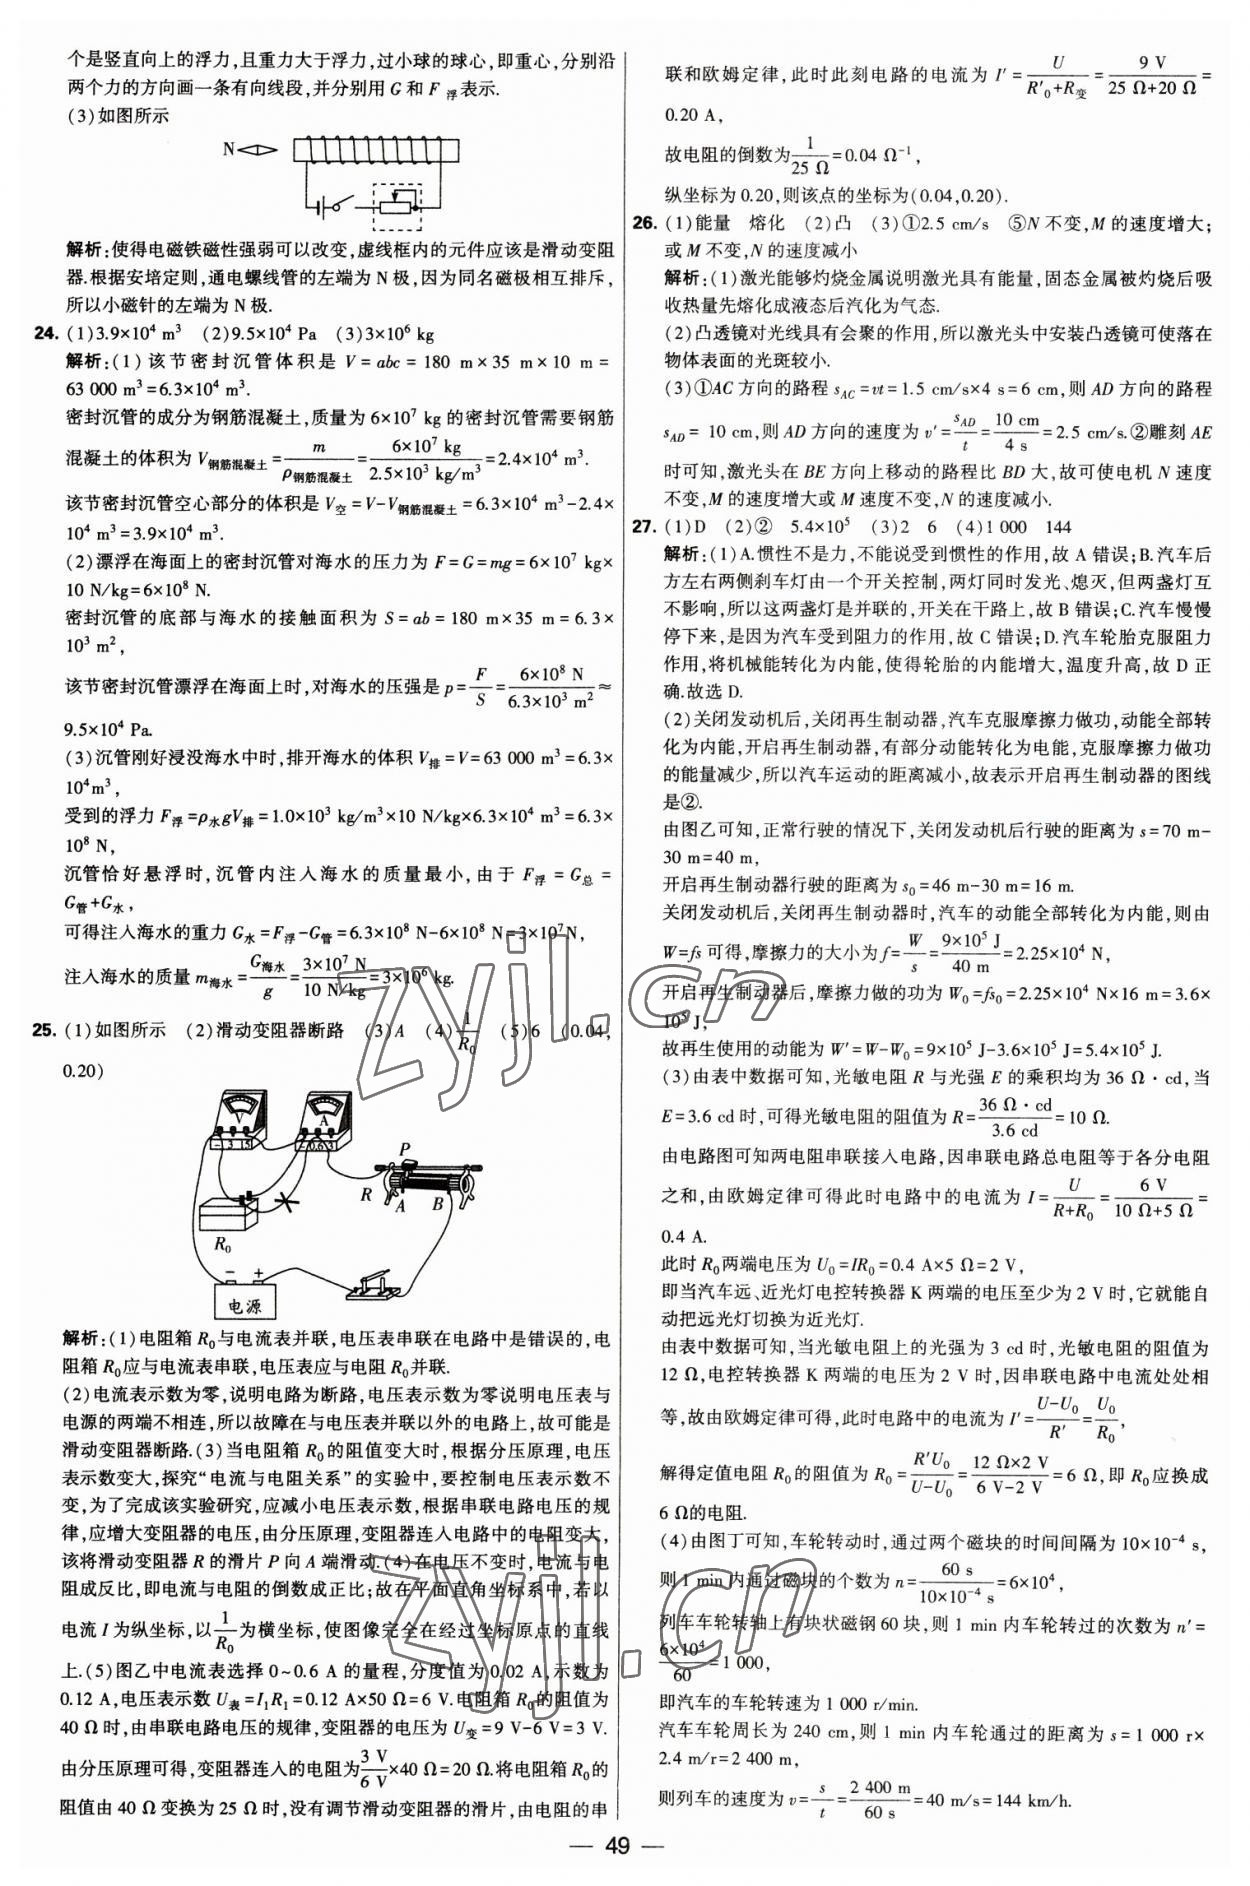 个是竖直向上的浮力,且重力大于浮力,过小球的球心,即重心,分别沿
两个力的方向画一条有向线段,并分别用 G 和 F浮表示.
(3)如图所示
N
解析:使得电磁铁磁性强弱可以改变,虚线框内的元件应该是滑动变阻
器.根据安培定则,通电螺线管的左端为 N 极,因为同名磁极相互排斥,
所以小磁针的左端为 N 极.
24. (1)3.9×10⁴ m³ (2)9.5×10⁴ Pa (3)3×10⁶ kg
解析:(1)该节密封沉管体积是 V=abc=180 m×35 m×10 m=
63 000 m³=6.3×10⁴ m³.
密封沉管的成分为钢筋混凝土,质量为 6×10⁷ kg 的密封沉管需要钢筋
混凝土的体积为 V钢筋混凝土=m/ρ钢筋混凝土=6×10⁷ kg/2.5×10³ kg/m³=2.4×10⁴ m³.
该节密封沉管空心部分的体积是 V空=V-V钢筋混凝土=6.3×10⁴ m³-2.4×
10⁴ m³=3.9×10⁴ m³.
(2)漂浮在海面上的密封沉管对海水的压力为 F=G=mg=6×10⁷ kg×
10 N/kg=6×10⁸ N.
密封沉管的底部与海水的接触面积为 S=ab=180 m×35 m=6.3×
10³ m²,
该节密封沉管漂浮在海面上时,对海水的压强是 p=F/S=6×10⁸ N/6.3×10³ m²≈
9.5×10⁴ Pa.
(3)沉管刚好浸没海水中时,排开海水的体积 V排=V=63 000 m³=6.3×
10⁴m³,
受到的浮力 F浮=ρ水gV排=1.0×10³ kg/m³×10 N/kg×6.3×10⁴ m³=6.3×
10⁸ N,
沉管恰好悬浮时,沉管内注入海水的质量最小,由于 F浮=G总=
G管+G水,
可得注入海水的重力 G水=F浮-G管=6.3×10⁸ N-6×10⁸ N=3×10⁷N,
注入海水的质量 m海水=G海水/g=3×10⁷ N/10 N/kg=3×10⁶ kg.
25. (1)如图所示 (2)滑动变阻器断路 (3)A (4)1/R₀ (5)6 (0.04,
0.20)
V
- 3 15
A
- 0.6 3
P
R
A B
R₀
- +
电源
解析:(1)电阻箱 R₀与电流表并联,电压表串联在电路中是错误的,电
阻箱 R₀应与电流表串联,电压表应与电阻 R₀并联.
(2)电流表示数为零,说明电路为断路,电压表示数为零说明电压表与
电源的两端不相连,所以故障在与电压表并联以外的电路上,故可能是
滑动变阻器断路.(3)当电阻箱 R₀的阻值变大时,根据分压原理,电压
表示数变大,探究“电流与电阻关系”的实验中,要控制电压表示数不
变,为了完成该实验研究,应减小电压表示数,根据串联电路电压的规
律,应增大变阻器的电压,由分压原理,变阻器连入电路中的电阻变大,
该将滑动变阻器 R 的滑片 P 向 A 端滑动.(4)在电压不变时,电流与电
阻成反比,即电流与电阻的倒数成正比;故在平面直角坐标系中,若以
电流 I 为纵坐标,以1/R₀为横坐标,使图像完全在经过坐标原点的直线
上.(5)图乙中电流表选择 0~0.6 A 的量程,分度值为 0.02 A,示数为
0.12 A,电压表示数 U表=I₁R₁=0.12 A×50 Ω=6 V.电阻箱 R₀的阻值为
40 Ω 时,由串联电路电压的规律,变阻器的电压为 U变=9 V-6 V=3 V.
由分压原理可得,变阻器连入的电阻为3 V/6 V×40 Ω=20 Ω.将电阻箱 R₀的
阻值由 40 Ω 变换为 25 Ω 时,没有调节滑动变阻器的滑片,由电阻的串
联和欧姆定律,此时此刻电路的电流为 I′=U/R′₀+R变=9 V/25 Ω+20 Ω=
0.20 A,
故电阻的倒数为1/25 Ω=0.04 Ω⁻¹,
纵坐标为 0.20,则该点的坐标为(0.04,0.20).
26. (1)能量 熔化 (2)凸 (3)①2.5 cm/s ⑤N 不变,M 的速度增大;
或 M 不变,N 的速度减小
解析:(1)激光能够灼烧金属说明激光具有能量,固态金属被灼烧后吸
收热量先熔化成液态后汽化为气态.
(2)凸透镜对光线具有会聚的作用,所以激光头中安装凸透镜可使落在
物体表面的光斑较小.
(3)①AC 方向的路程 sAC=vt=1.5 cm/s×4 s=6 cm,则 AD 方向的路程
sAD=10 cm,则 AD 方向的速度为 v′=sAD/t=10 cm/4 s=2.5 cm/s.②雕刻 AE
时可知,激光头在 BE 方向上移动的路程比 BD 大,故可使电机 N 速度
不变,M 的速度增大或 M 速度不变,N 的速度减小.
27. (1)D (2)② 5.4×10⁵ (3)2 6 (4)1 000 144
解析:(1)A.惯性不是力,不能说受到惯性的作用,故 A 错误;B.汽车后
方左右两侧刹车灯由一个开关控制,两灯同时发光、熄灭,但两盏灯互
不影响,所以这两盏灯是并联的,开关在干路上,故 B 错误;C.汽车慢慢
停下来,是因为汽车受到阻力的作用,故 C 错误;D.汽车轮胎克服阻力
作用,将机械能转化为内能,使得轮胎的内能增大,温度升高,故 D 正
确.故选 D.
(2)关闭发动机后,关闭再生制动器,汽车克服摩擦力做功,动能全部转
化为内能,开启再生制动器,有部分动能转化为电能,克服摩擦力做功
的能量减少,所以汽车运动的距离减小,故表示开启再生制动器的图线
是②.
由图乙可知,正常行驶的情况下,关闭发动机后行驶的距离为 s=70 m-
30 m=40 m,
开启再生制动器行驶的距离为 s₀=46 m-30 m=16 m.
关闭发动机后,关闭再生制动器时,汽车的动能全部转化为内能,则由
W=fs 可得,摩擦力的大小为 f=W/s=9×10⁵ J/40 m=2.25×10⁴ N,
开启再生制动器后,摩擦力做的功为 W₀=fs₀=2.25×10⁴ N×16 m=3.6×
10⁵ J,
故再生使用的动能为 W′=W-W₀=9×10⁵ J-3.6×10⁵ J=5.4×10⁵ J.
(3)由表中数据可知,光敏电阻 R 与光强 E 的乘积均为 36 Ω·cd,当
E=3.6 cd 时,可得光敏电阻的阻值为 R=36 Ω·cd/3.6 cd=10 Ω.
由电路图可知两电阻串联接入电路,因串联电路总电阻等于各分电阻
之和,由欧姆定律可得此时电路中的电流为 I=U/R+R₀=6 V/10 Ω+5 Ω=
0.4 A.
此时 R₀两端电压为 U₀=IR₀=0.4 A×5 Ω=2 V,
即当汽车远、近光灯电控转换器 K 两端的电压至少为 2 V 时,它就能自
动把远光灯切换为近光灯.
由表中数据可知,当光敏电阻上的光强为 3 cd 时,光敏电阻的阻值为
12 Ω,电控转换器 K 两端的电压为 2 V 时,因串联电路中电流处处相
等,故由欧姆定律可得,此时电路中的电流为 I′=U-U₀/R′=U₀/R₀,
解得定值电阻 R₀的阻值为 R₀=R′U₀/U-U₀=12 Ω×2 V/6 V-2 V=6 Ω,即 R₀应换成
6 Ω的电阻.
(4)由图丁可知,车轮转动时,通过两个磁块的时间间隔为 10×10⁻⁴ s,
则 1 min 内通过磁块的个数为 n=60 s/10×10⁻⁴ s=6×10⁴,
列车车轮转轴上有块状磁钢 60 块,则 1 min 内车轮转过的次数为 n′=
6×10⁴/60=1 000,
即汽车的车轮转速为 1 000 r/min.
汽车车轮周长为 240 cm,则 1 min 内车轮通过的距离为 s=1 000 r×
2.4 m/r=2 400 m,
则列车的速度为 v=s/t=2 400 m/60 s=40 m/s=144 km/h.
zyjl.cn
zyjl.cn
— 49 —